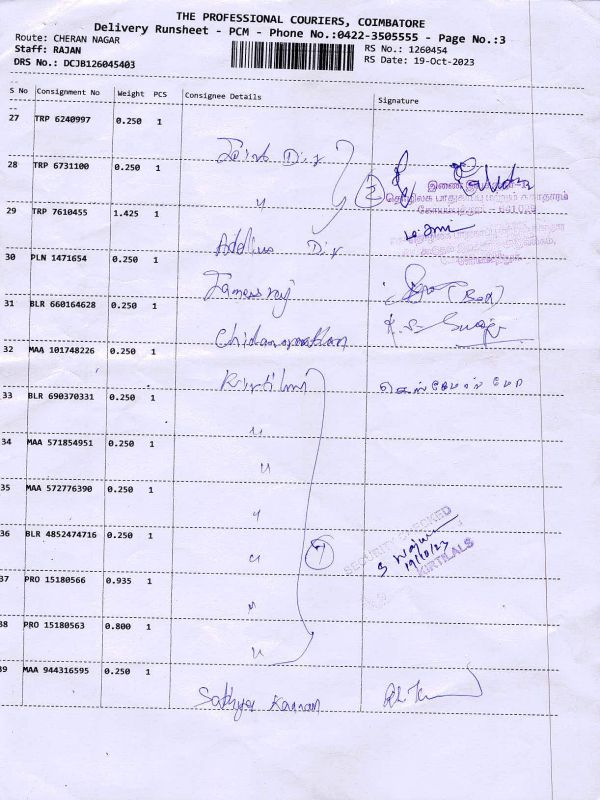 THE PROFESSIONAL COURIERS, COIMBATORE
Delivery Runsheet - PCM - Phone No.:0422-3505555 - Page No.:3
Route: CHERAN NAGAR
RS No.: 1260454
Staff: RAJAN
RS Date: 19-Oct-2023
DRS No.: DCJB126045403
S No Consignment No Weight PCS Consignee Details Signature
27 TRP 6240997 0.250 1
Joint Dir
28 TRP 6731100 0.250 1
"
2
29 TRP 7610455 1.425 1
Dir
30 PLN 1471654 0.250 1
31 BLR 660164628 0.250 1
32 MAA 101748226 0.250 1
33 BLR 690370331 0.250 1
"
34 MAA 571854951 0.250 1
"
35 MAA 572776390 0.250 1
"
36 BLR 4852474716 0.250 1
"
7
SECURITY CHECKED
19/10/23
KIRTILALS
37 PRO 15180566 0.935 1
"
38 PRO 15180563 0.800 1
"
39 MAA 944316595 0.250 1
Sathya